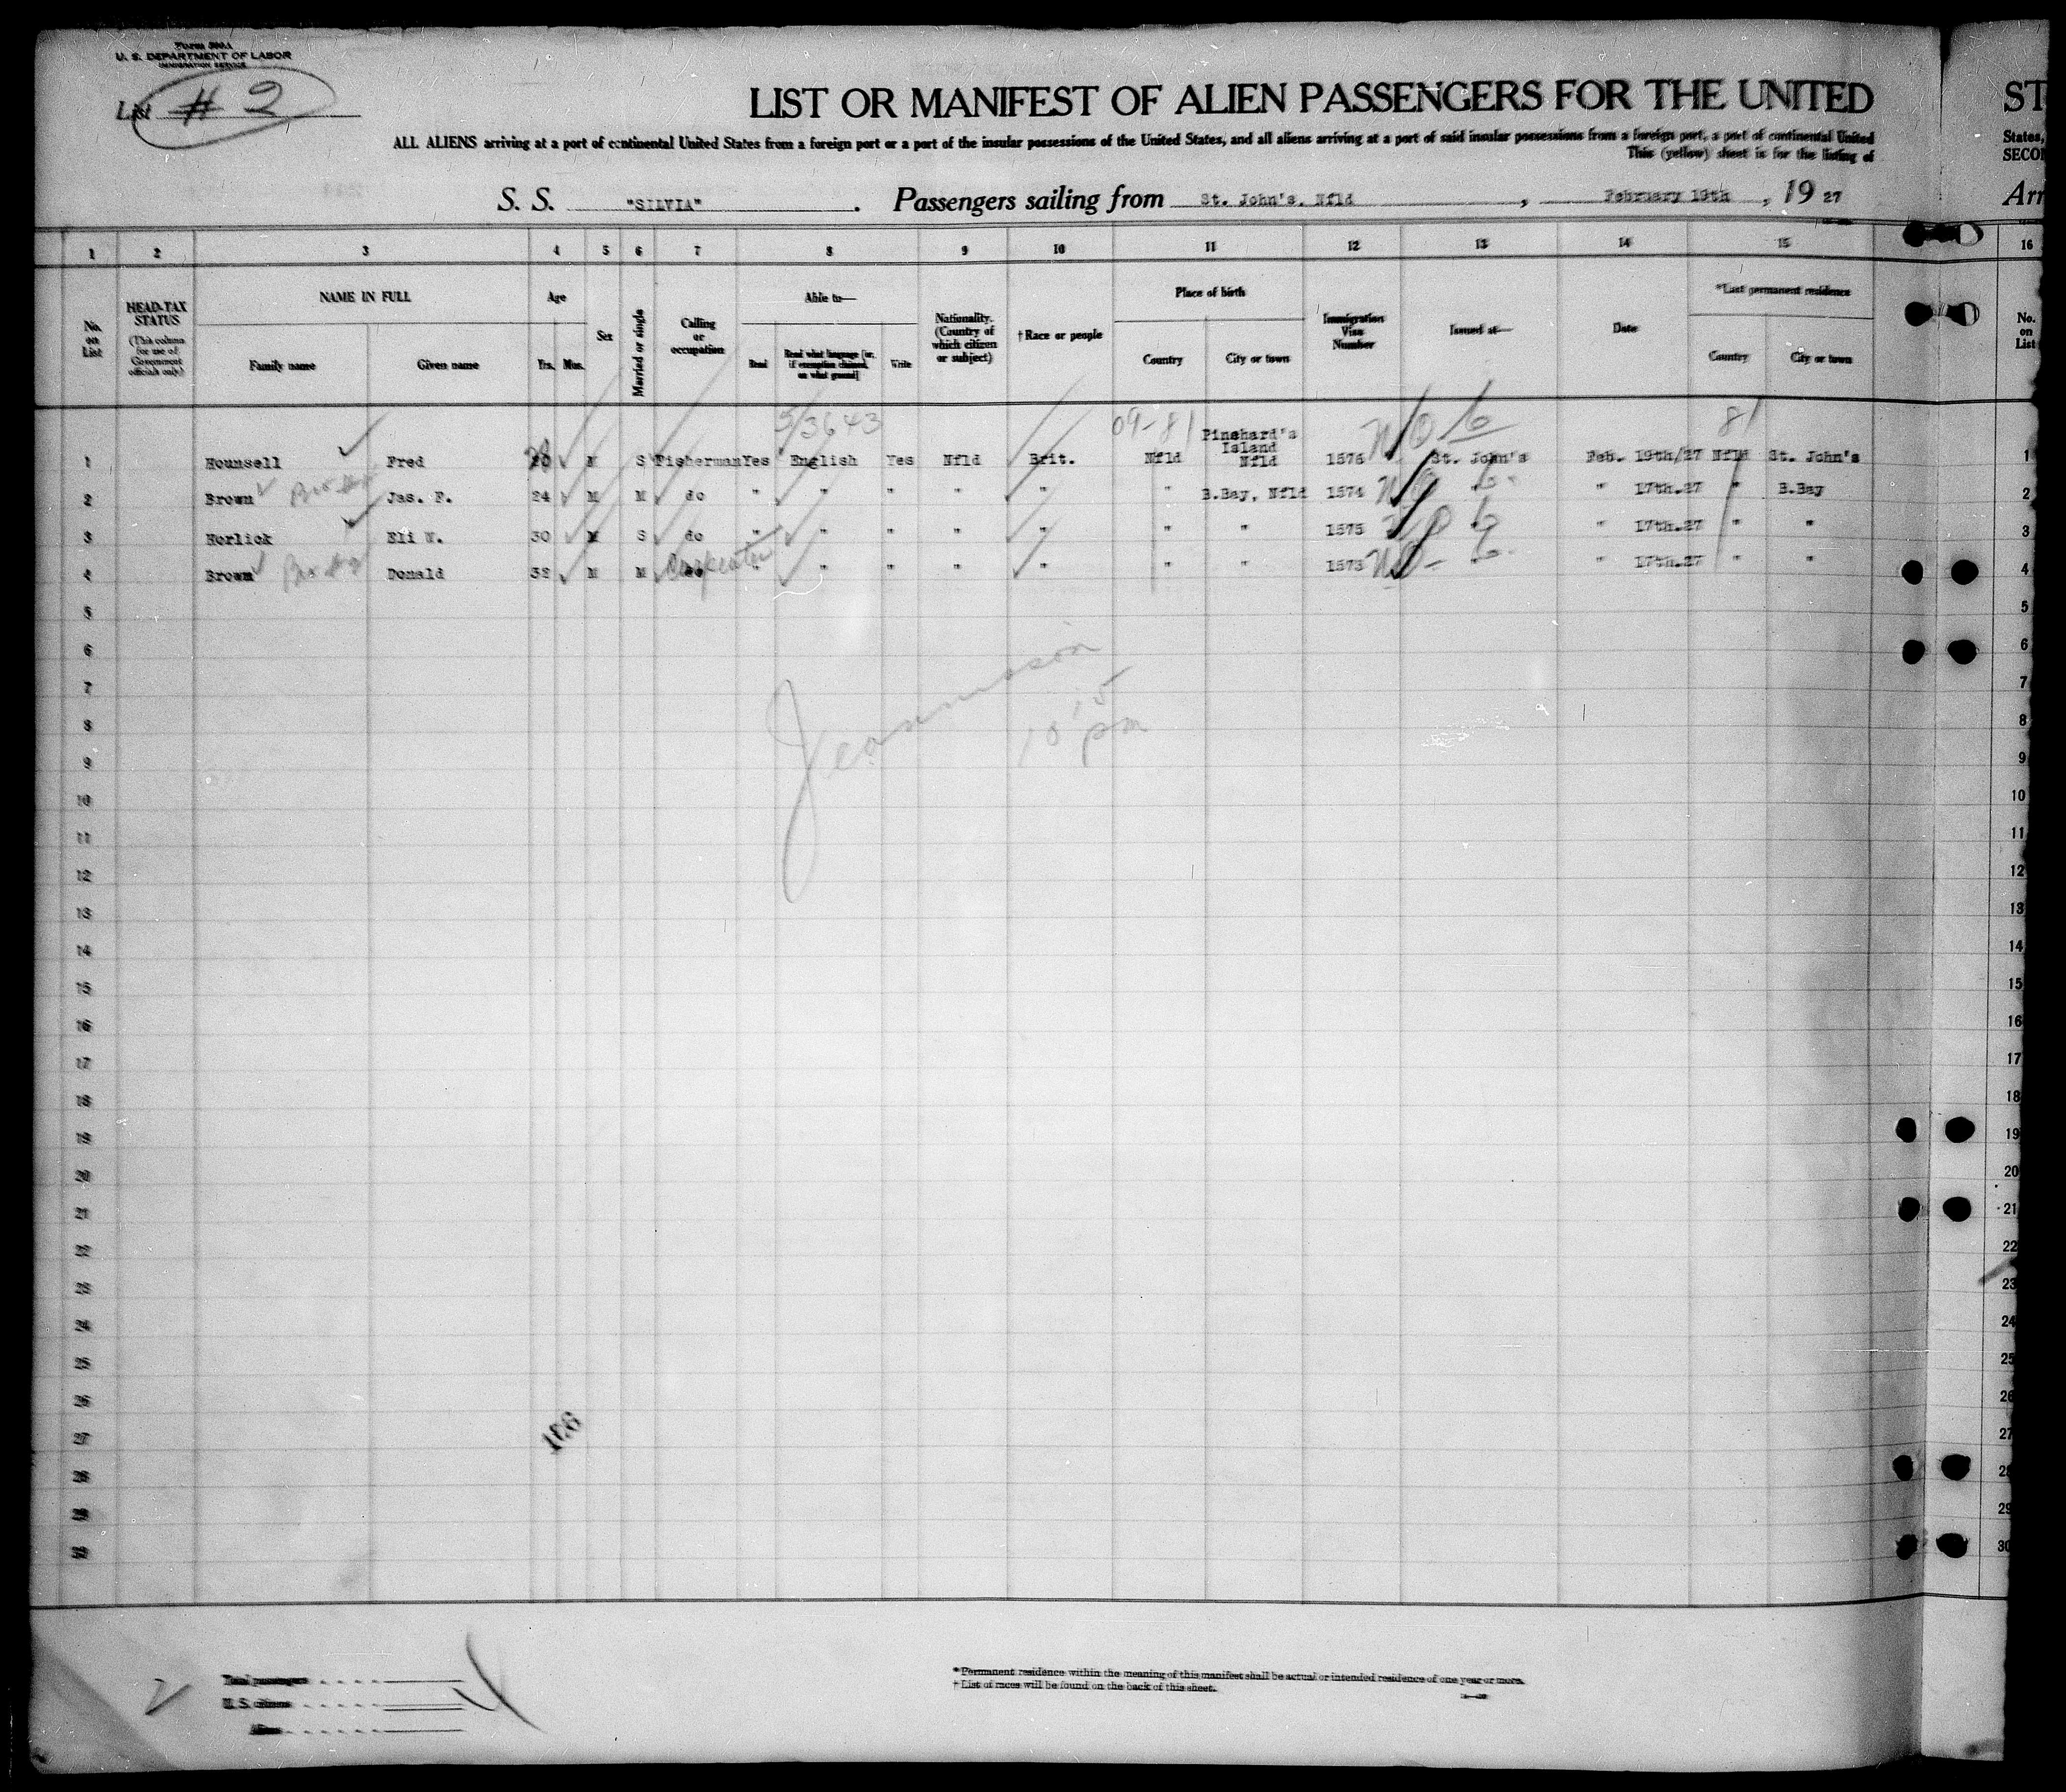 Form 500A
U. S. DEPARTMENT OF LABOR
IMMIGRATION SERVICE
List # 2
LIST OR MANIFEST OF ALIEN PASSENGERS FOR THE UNITED
ST
ALL ALIENS arriving at a port of continental United States from a foreign port or a part of the insular possessions of the United States, and all aliens arriving at a port of said insular possessions from a foreign port, a part of continental United
States,
This (yellow) sheet is for the listing of
SECO
S. S. "SILVIA". Passengers sailing from St. John's, Nfld, February 19th, 19 27
Arr
1 2 3 4 5 6 7 8 9 10 11 12 13 14 15 16
No. on List
HEAD-TAX STATUS (This column for use of Government officials only)
NAME IN FULL
Family name Given name
Age
Yrs. Mos.
Sex
Married or single
Calling or occupation
Able to—
Read Read what language [or, if exemption claimed, on what ground] Write
Nationality. (Country of which citizen or subject)
†Race or people
Place of birth
Country City or town
Immigration Visa Number
Issued at—
Date
*Last permanent residence
Country City or town
No. on List
5/3643 09-81 81
1 Hounsell Fred M S Fisherman Yes English Yes Nfld Brit. Nfld Pinchard's Island Nfld 1576 St. John's Feb. 19th/27 Nfld St. John's 1
2 Brown Jas. F. 24 M M do " " " " " " B.Bay, Nfld 1574 " 17th.27 " B.Bay 2
3 Horlick Eli W. 30 M S do " " " " " " " 1575 " 17th.27 " " 3
4 Brown Donald 32 M M Carpenter " " " " " " " 1573 " 17th.27 " " 4
5 5
6 6
7 7
8 8
9 9
10 10
11 11
12 12
13 13
14 14
15 15
16 16
17 17
18 18
19 19
20 20
21 21
22 22
23 23
24 24
25 25
26 26
27 27
28 28
29 29
30 30
10 15 pm
186
Total passengers
U. S. citizens
Aliens
*Permanent residence within the meaning of this manifest shall be actual or intended residence of one year or more.
†List of races will be found on the back of this sheet.